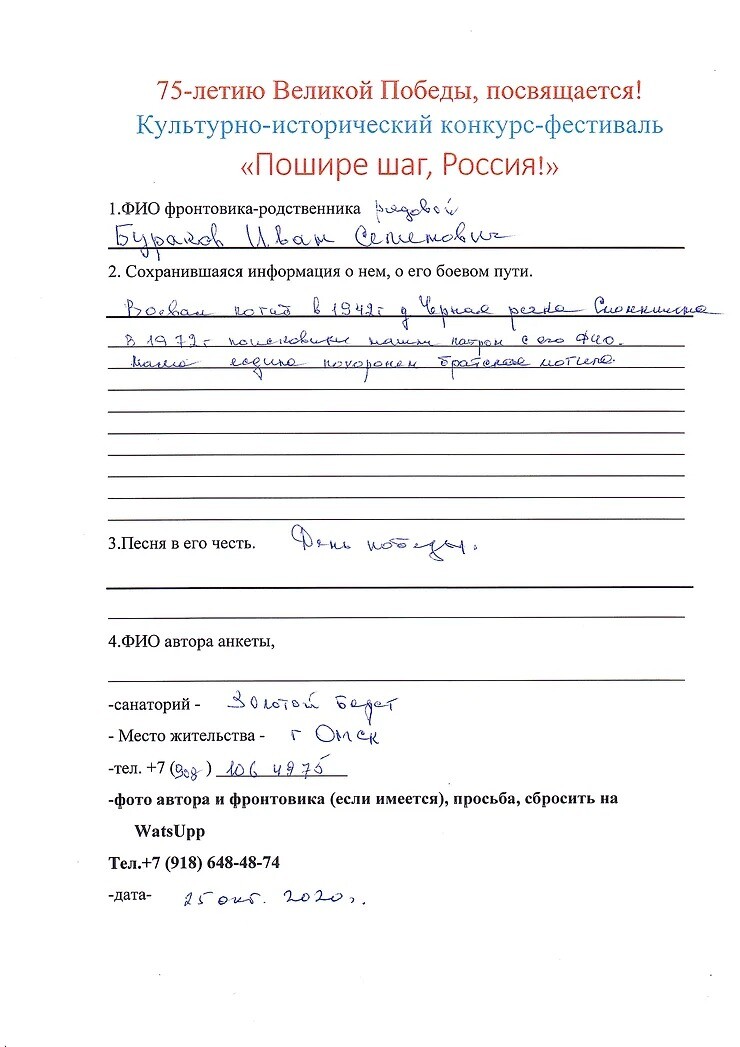 75-летию Великой Победы, посвящается!
Культурно-исторический конкурс-фестиваль
«Пошире шаг, Россия!»
1.ФИО фронтовика-родственника рядовой
Бураков Иван Семенович
2. Сохранившаяся информация о нем, о его боевом пути.
Воевал погиб в 1942г д Черная речка
В 1972г поисковики нашли патрон с его ФИО.
похоронен братская могила.
3.Песня в его честь. День победы.
4.ФИО автора анкеты,
-санаторий - Золотой Берег
- Место жительства - г Омск
-тел. +7 (908) 106 4975
-фото автора и фронтовика (если имеется), просьба, сбросить на
WatsUpp
Тел.+7 (918) 648-48-74
-дата- 25 окт. 2020,.